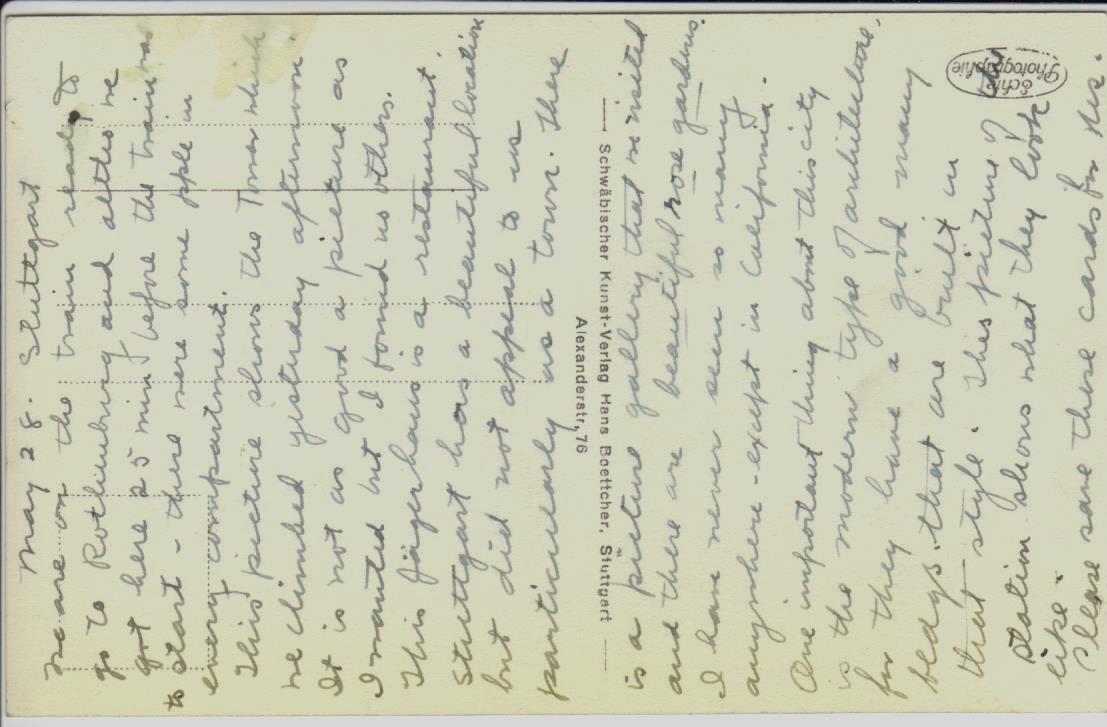 May 28. Stuttgart
We are on the train ready to
go to Rothenburg and altho we
got here 25 min before the train was
to start - there were some pple in
every compartment.
This picture shows the Tower which
we climbed yesterday afternoon.
It is not as good a picture as
I wanted but I found no others.
This Jägerhaus is a restaurant.
Stuttgart has a beautiful location
but did not appeal to us
particularly as a town. There
Schwäbischer Kunst-Verlag Hans Boettcher, Stuttgart
Alexanderstr, 76
is a picture gallery that we visited
and there are beautiful rose gardens.
I have never seen so many
anywhere - except in California.
One important thing about this city
is the modern type of architecture,
for they have a good many
bldgs. that are built in
that style. This picture of the
station shows what they look
like.
Please save these cards for me.
Echte
Photographie